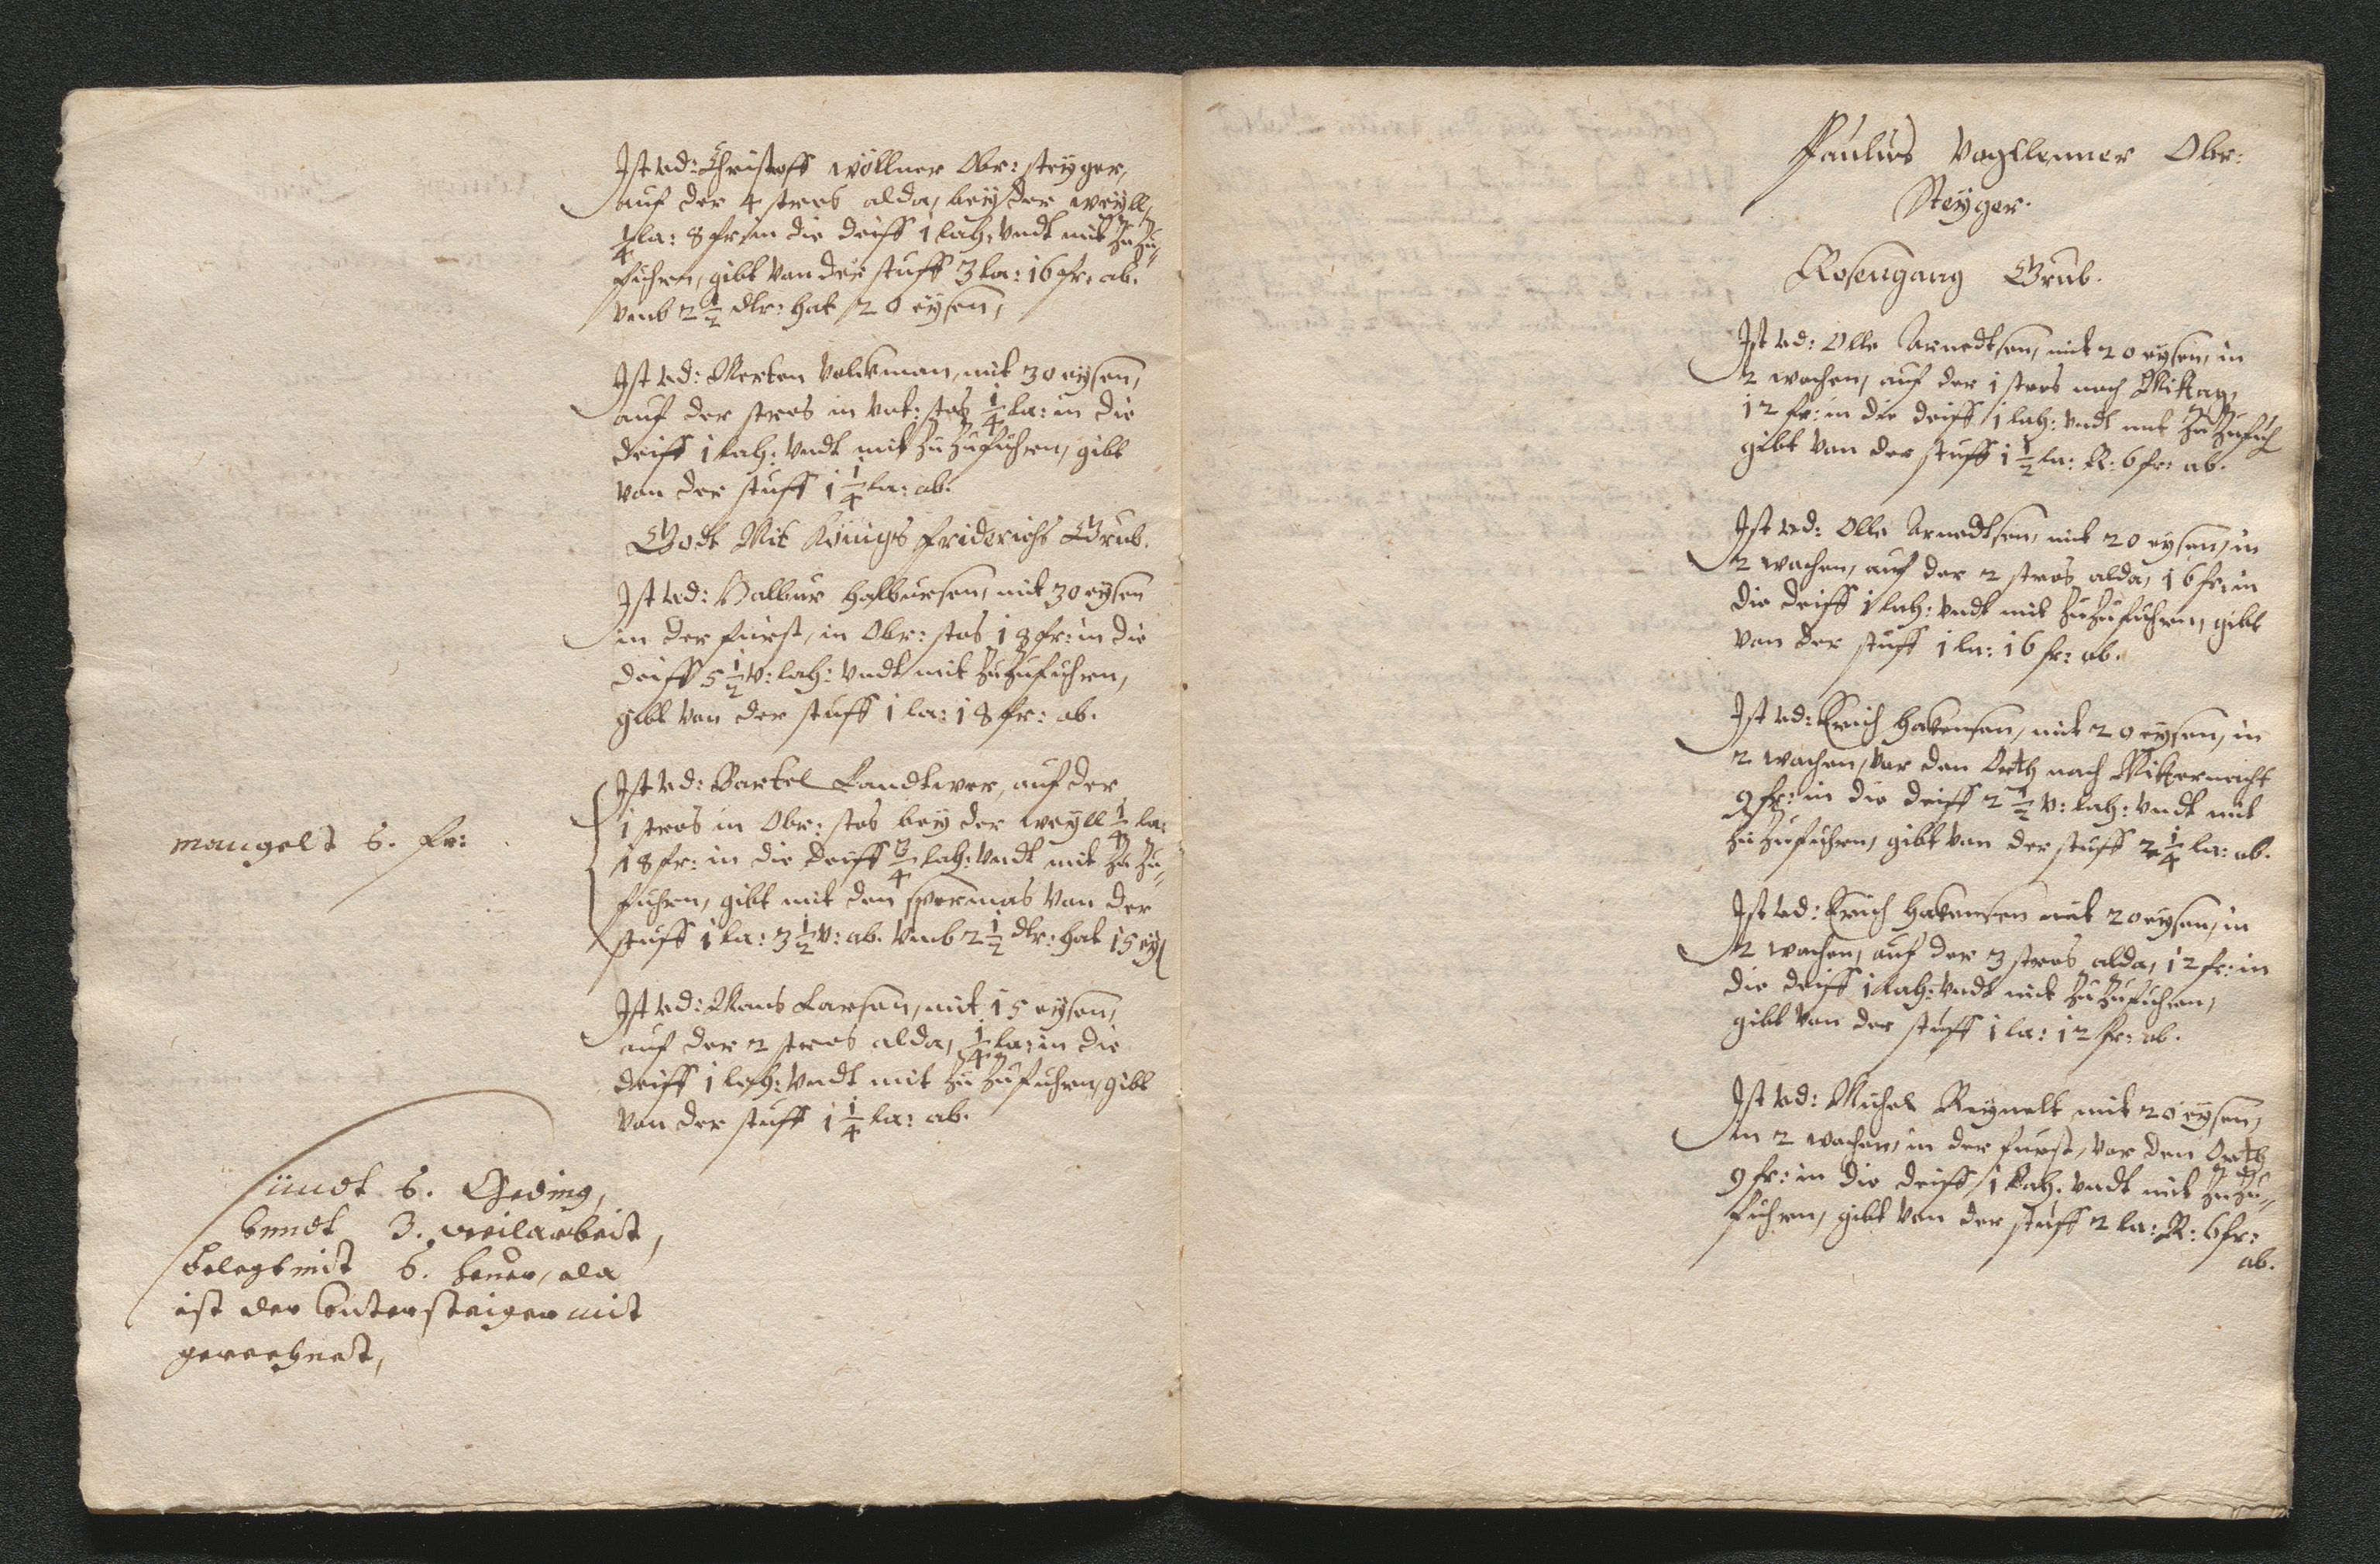 Ist vd: Christoff wöllner Obr: steyger,
auf der 4 stros alda, bey der weyll,
1/4 la: 8 fr: in die deiff 1 lah: vndt mit zu zu-
fuhren, gibt von der stuff 3 la: 16 fr: ab.
vmb 2 1/2 dlr: hat 20 eysen,
Ist vd: Merten Volckman, mit 30 eysen,
auf der stros in vnt: stos 1/4 la: in die
deiff 1 lah: vndt mit zu zufuhren, gibt
von der stuff 1 1/4 la: ab.
Godt Mit Königs Friderichs Grub.
Ist vd: Halbur Halbursen, mit 30 eysen
in der furst, in Obr: stos 18 fr: in die
deiff 5 1/2 v: lah: vndt mit zu zufuhren,
gibt von der stuff 1 la: 18 fr: ab.
Ist vd: Bartel Landtwer, auf der
1 stros in Obr: stos bey der weyll 1/4 la:
18 fr: in die deiff 3/4 lah: vndt mit zu zu-
fuhren, gibt mit den spermas von der
stuff 1 la: 3 1/2 v: ab. vmb 2 1/2 dlr: hat 15 eys
mangelt 6. fr:
Ist vd: Mons Larsen, mit 15 eysen,
auf der 2 stros alda, 1/4 la: in die
deiff 1 lah: vndt mit zu zufuhren, gibt
von der stuff 1 1/4 la: ab.
sindt 6. Geding,
vnndt 3. weilarbeit,
belegt mit 6. heuer, ala
ist der Untersteiger mit
gerechnet,
Paulus Vogllenner Obr:
Steyger.
Rosengang Grub.
Ist vd: Olle Arnedtsen, mit 20 eysen, in
2 wochen, auf der 1 stros nach Mittag,
12 fr: in die deiff 1 lah: vndt mit zu zufuh
gibt von der stuff 1 1/2 la: R: 6 fr: ab.
Ist vd: Olle Arnedtsen, mit 20 eysen, in
2 wochen, auf der 2 stros alda, 16 fr: in
die deiff 1 lah: vndt mit zu zufuhren, gibt
von der stuff 1 la: 16 fr: ab.
Ist vd: Erich Hakensen, mit 20 eysen, in
2 wochen, vor den Orth nach Mitternacht
9 fr: in die deiff 2 1/2 v: lah: vndt mit
zu zufuhren, gibt von der stuff 2 1/4 la: ab.
Ist vd: Erich Hakensen mit 20 eysen, in
2 wochen, auf der 3 stros alda, 12 fr: in
die deiff 1 lah: vndt mit zu zufuhren,
gibt von der stuff 1 la: 12 fr: ab.
Ist vd: Michel Reynelt mit 20 eysen,
in 2 wochen, in der furst, vor den Orth
9 fr: in die deiff 1 lah: vndt mit zu zu-
fuhren, gibt von der stuff 2 la: R: 6 fr:
ab.